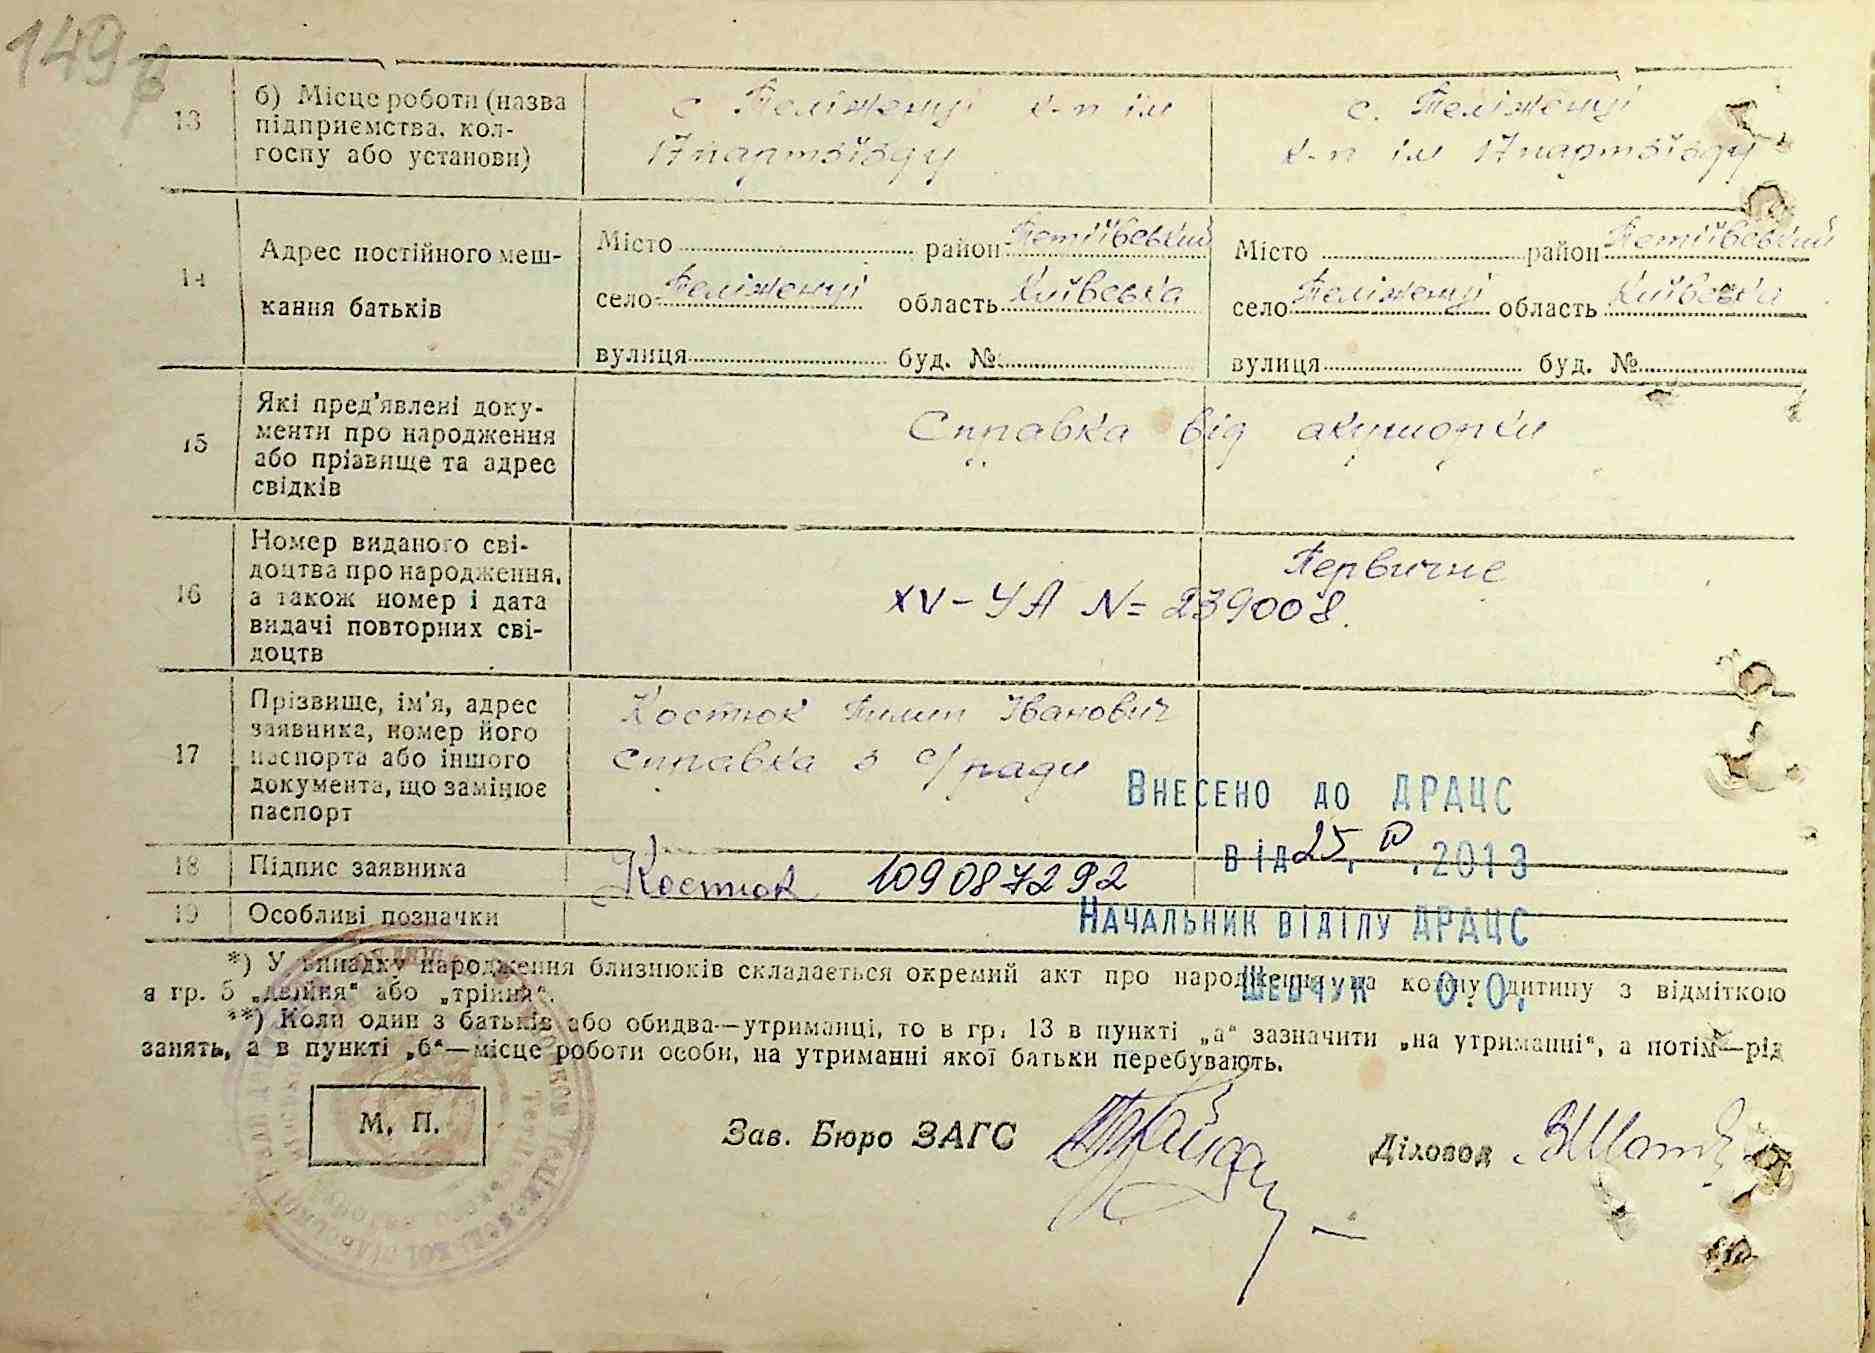 149
13
б) Місце роботи (назва
підприємства, кол-
госпу або установи)
с Теліженці к-п ім
17 партз'їзду
с. Теліженці
к-п ім 17 партз'їзду
14
Адрес постійного меш-
кання батьків
Місто район Тетіївський
село Теліженці область Київська
вулиця буд. №
Місто район Тетіївський
село Теліженці область Київська
вулиця буд. №
15
Які пред'явлені доку-
менти про народження
або прізвище та адрес
свідків
Справка від акушорки
16
Номер виданого сві-
доцтва про народження,
а також номер і дата
видачі повторних сві-
доцтв
Первичне
XV-УА № 239008.
17
Прізвище, ім'я, адрес
заявника, номер його
паспорта або іншого
документа, що замінює
паспорт
Костюк Пилип Іванович
справка з с/ради
Внесено до ДРАЦС
від 25. IV .2013
18 Підпис заявника
Костюк 109087292
19 Особливі позначки
Начальник відділу ДРАЦС
Шевчук О.О.
*) У випадку народження близнюків складається окремий акт про народження на кожну дитину з відміткою
в гр. 5 „двійня“ або „трійня“.
**) Коли один з батьків або обидва—утриманці, то в гр. 13 в пункті „а“ зазначити „на утриманні“, а потім—рід
занять, а в пункті „б“—місце роботи особи, на утриманні якої батьки перебувають.
М. П.
Зав. Бюро ЗАГС
Діловод